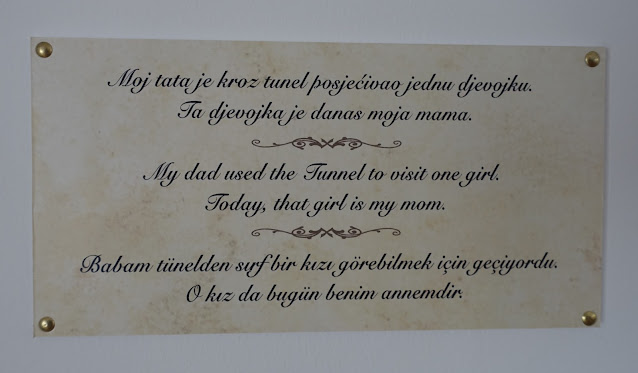 Moj tata je kroz tunel posjećivao jednu djevojku.
Ta djevojka je danas moja mama.
My dad used the Tunnel to visit one girl.
Today, that girl is my mom.
Babam tünelden sırf bir kızı görebilmek için geçiyordu.
O kız da bugün benim annemdir.